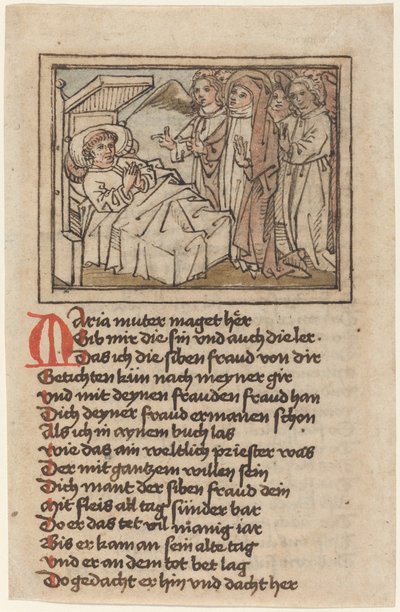 Maria muter maget her
Gib mir die sin vnd auch die ler
Das ich die siben fraud von dir
Getichten kün nach meyner gir
Vnd mit deynen frauden fraud han
Dich deyner fraud ermanen schon
Als ich in aynem buch las
Wie das ain weltlich priester was
Der mit gantzem willen sein
Dich mant der siben fraud dein
Mit fleis all tag sunder bar
Do er das tet vil manig iar
Bis er kam an sein alte tag
Vnd er an dem tot bet lag
Do gedacht er hin vnd dacht her